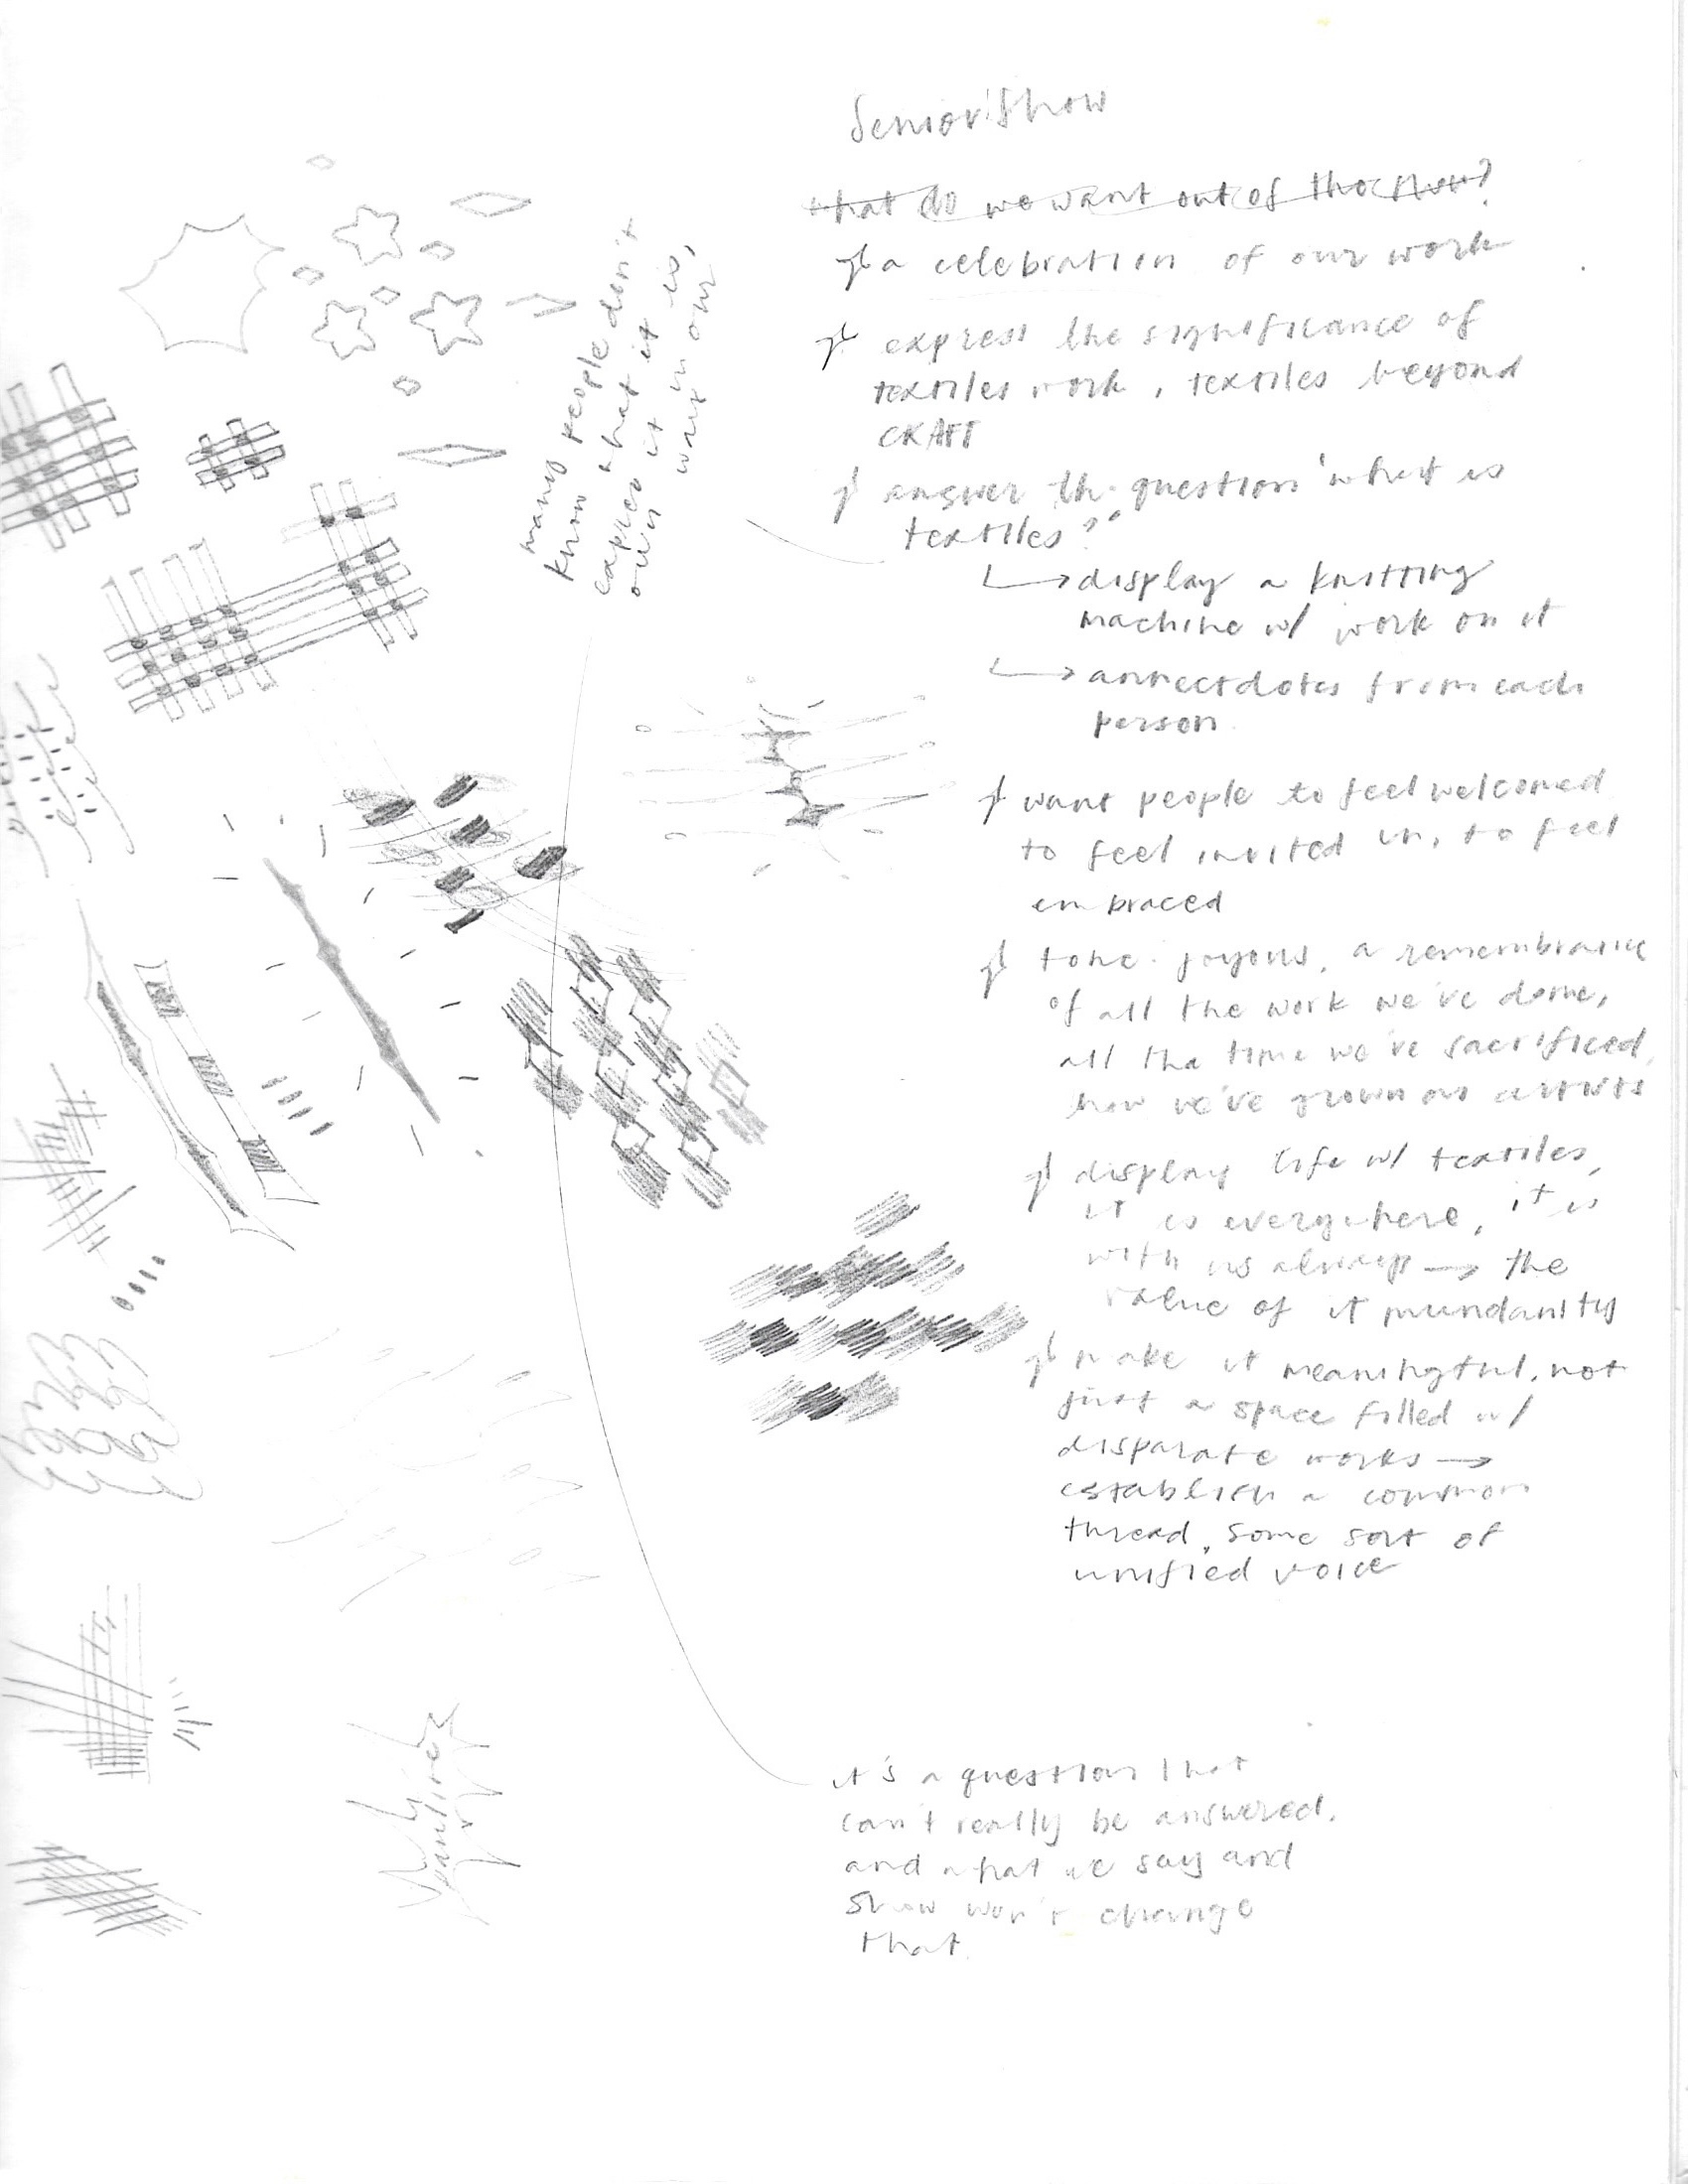 Senior Show
what do we want out of the show?
a celebration of our work
express the significance of
textiles work, textiles beyond
CRAFT
answer the question "what is
textiles?"
display a knitting
machine w/ work on it
annectdotes from each
person
want people to feel welcomed
to feel invited in, to feel
embraced
tone: joyous, a remembrance
of all the work we've done,
all the time we've sacrificed,
how we've grown as artists
display life w/ textiles,
it is everywhere, it is
with us always → the
value of it mundanity
make it meaningful, not
just a space filled w/
disparate works →
establish a common
thread, some sort of
unified voice
many people don't
know what it is,
express it in our
own way
it's a question that
can't really be answered,
and what we say and
show won't change
that.
pauline